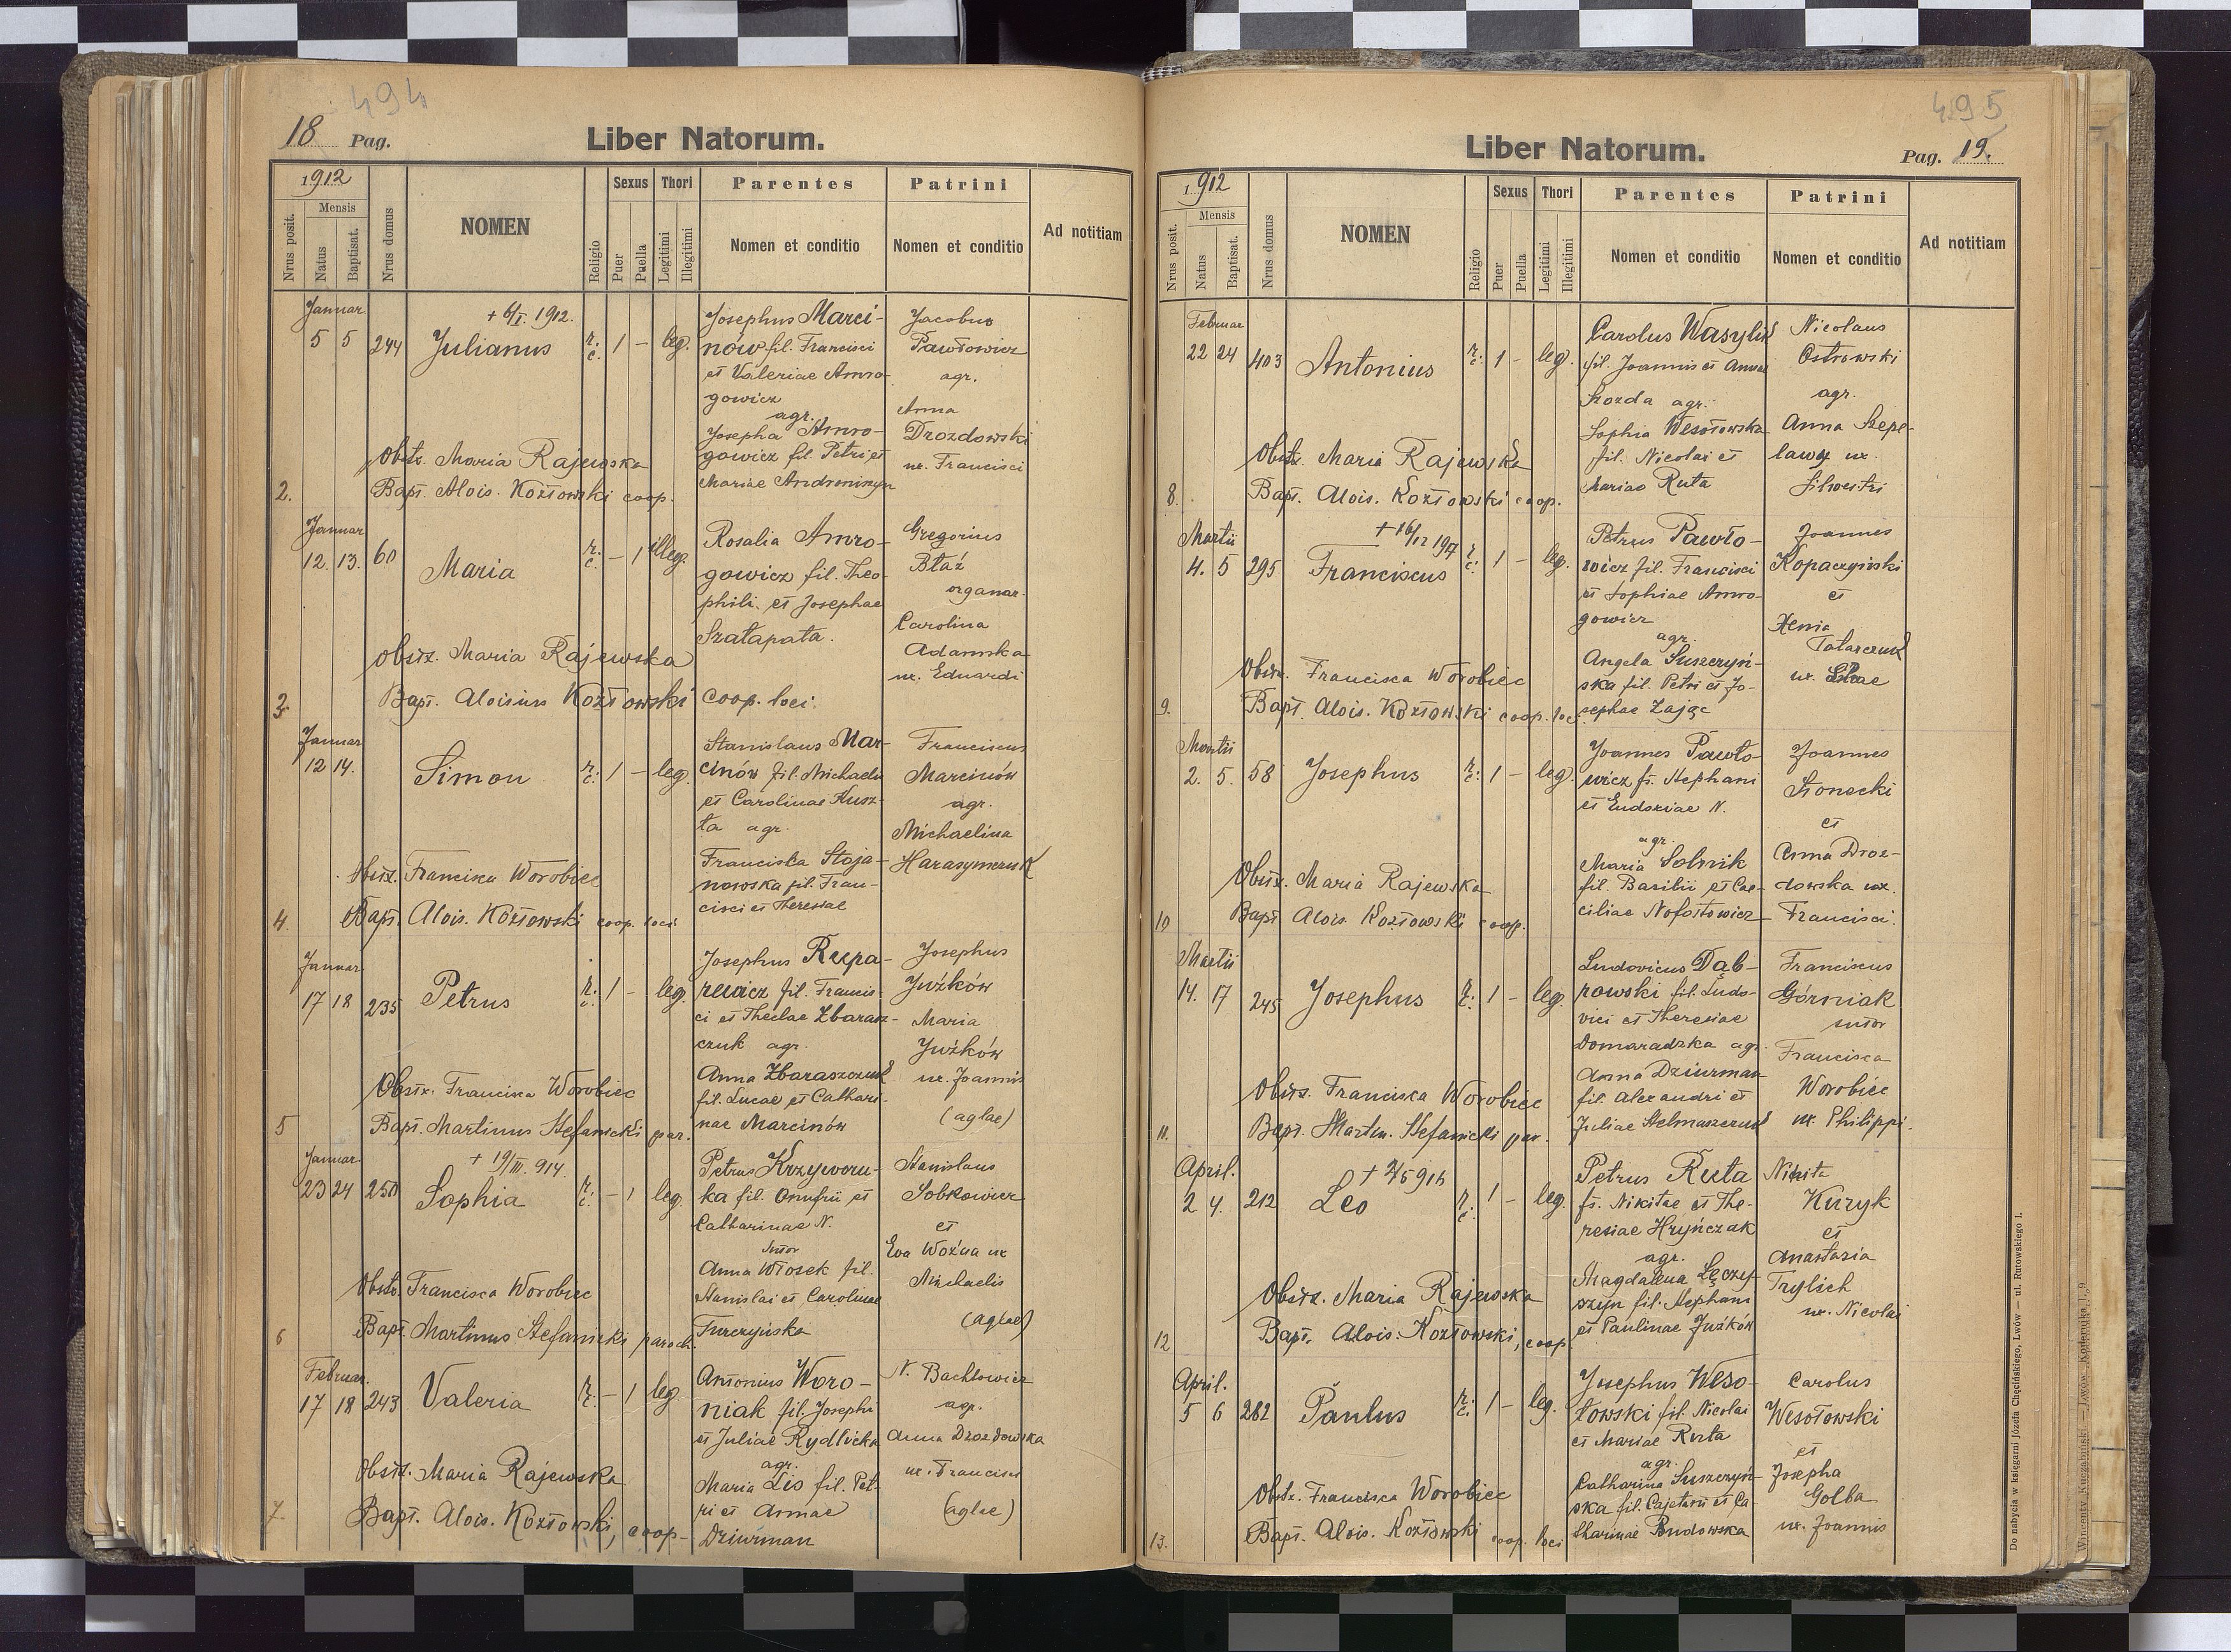 494
18 Pag.
Liber Natorum.
1912
Mensis
Nrus posit.
Natus
Baptisat.
Nrus domus
NOMEN
Religio
Sexus
Puer
Puella
Thori
Legitimi
Illegitimi
Parentes
Nomen et conditio
Patrini
Nomen et conditio
Ad notitiam
Januar
5 5 244
+ 6/I. 1912.
Julianus
r. c. 1 – leg.
Josephus Marci-
nów fil. Francisci
et Valeriae Amro-
gowicz
agr.
Josepha Amro-
gowicz fil. Petri et
Mariae Androniszyn
Jacobus
Pawłowicz
agr.
Anna
Drozdowski
ux. Francisci
Obstz. Maria Rajewska
2. Bapt. Alois. Kozłowski coop.
Januar
12. 13. 60
Maria
r. c. – 1 illeg.
Rosalia Amro-
gowicz fil. Theo-
phili et Josephae
Szałapata.
Gregorius
Błaź
organar.
Carolina
Adamska
ux. Eduardi
Obstz. Maria Rajewska
3. Bapt. Aloisius Kozłowski coop. loci.
Januar
12 14.
Simon
r. c. 1 – leg.
Stanislaus Mar-
cinów fil. Michaelis
et Carolinae Kusz-
ta agr.
Franciska Stoja-
nowska fil. Fran-
cisci et Theresiae
Franciscus
Marcinów
agr.
Michaelina
Harasymczuk
Obstz. Francisca Worobiec
4. Bapt. Alois. Kozłowski coop. loci
Januar
17 18 235
Petrus
r. c. 1 – leg.
Josephus Rzepa-
rewicz fil. Francis-
ci et Theclae Zbarasz-
czuk agr.
Anna Zbaraszczuk
fil. Lucae et Cathari-
nae Marcinów
Josephus
Juźków
Maria
Juźków
ux. Joannis
(aglae)
Obstz. Francisca Worobiec
5 Bapt. Martinus Stefanicki par.
Januar
23 24 250
+ 19/III. 914.
Sophia
r. c. – 1 leg.
Petrus Krzyworu-
ka fil. Onufrii et
Catharinae N.
sutor
Anna Włosek fil.
Stanislai et Carolinae
Turczyńska
Stanislaus
Sobkowicz
et
Eva Woźna ux
Michaelis
(aglae)
Obstz. Francisca Worobiec
6 Bapt. Martinus Stefanicki paroch.
Februar.
17 18 243
Valeria
r. c. – 1 leg
Antonius Woro-
niak fil. Josephi
et Juliae Rydlicka
agr.
Maria Lis fil. Pet-
ri et Annae
Dziurman
N. Bachłowicz
agr.
Anna Drozdowska
ux. Francisci
(aglae)
Obstz. Maria Rajewska
7. Bapt. Alois. Kozłowski, coop.
495
Liber Natorum.
Pag. 19.
1912
Mensis
Nrus posit.
Natus
Baptisat.
Nrus domus
NOMEN
Religio
Sexus
Puer
Puella
Thori
Legitimi
Illegitimi
Parentes
Nomen et conditio
Patrini
Nomen et conditio
Ad notitiam
Februar
22 24 403
Antonius
r. c. 1 – leg.
Carolus Wasyluk
fil. Joannis et Annae
agr.
Sophia Wesołowska
fil. Nicolai et
Mariae Ruta
Nicolaus
Ostrowski
agr.
Anna Szepe-
lawy ux.
Silvestri
Obstz. Maria Rajewska
8. Bapt. Alois. Kozłowski coop.
Martii
4. 5 295
Franciscus
r. c. 1 – leg.
Petrus Pawło-
wicz fil. Francisci
et Sophiae Amro-
gowicz
agr.
Angela Suszczyń-
ska fil. Petri et Jo-
sephae Zając
Joannes
Kopaczyński
et
Xenia
Tatarczuk
ux. Eliae
Obstz. Francisca Worobiec
9. Bapt. Alois. Kozłowski coop. loc.
Martii
2. 5. 58
Josephus
r. c. 1 – leg.
Joannes Pawło-
wicz fs. Stephani
et Eudoxiae N.
agr.
Maria Solnik
fil. Basilii et Cae-
ciliae Nofostowicz
Joannes
Słonecki
et
Anna Droz-
dowska ux.
Francisci.
Obstz. Maria Rajewska
10 Bapt Alois. Kozłowski coop.
Martii
14. 17 245
Josephus
r. c. 1 – leg.
Ludovicus Dąb-
rowski fil. Ludo-
vici et Theresiae
Domaradzka agr.
Anna Dziurman
fil. Alexandri et
Juliae Stelmaszczuk
Franciscus
Górniak
sutor
Francisca
Worobiec
ux. Philippi.
Obstz. Francisca Worobiec
11. Bapt. Martin. Stefanicki par.
April.
2 4. 212
Leo
r. c. 1 – leg.
Petrus Ruta
fs. Nikitae et The-
resiae Hryńczak
agr.
Magdalena Łęczy-
szyn fil. Stephani
et Paulinae Juźków
Nikita
Kuryk
et
Anastazia
Trylich
ux. Nicolai
Obstz. Maria Rajewska
12 Bapt. Alois. Kozłowski, coop
April.
5 6 282
Paulus
r. c. 1 – leg.
Josephus Weso-
łowski fil. Nicolai
et Mariae Ruta
agr.
Catharina Suszczyń-
ska fil. Cajetani et Ca-
tharinae Budowska
Carolus
Wesołowski
et
Josepha
Golba
ux. Joannis
Obstz. Francisca Worobiec
13. Bapt. Alois. Kozłowski coop. loci
Do nabycia w księgarni Józefa Chęcińskiego, Lwów — ul. Rutowskiego 1.